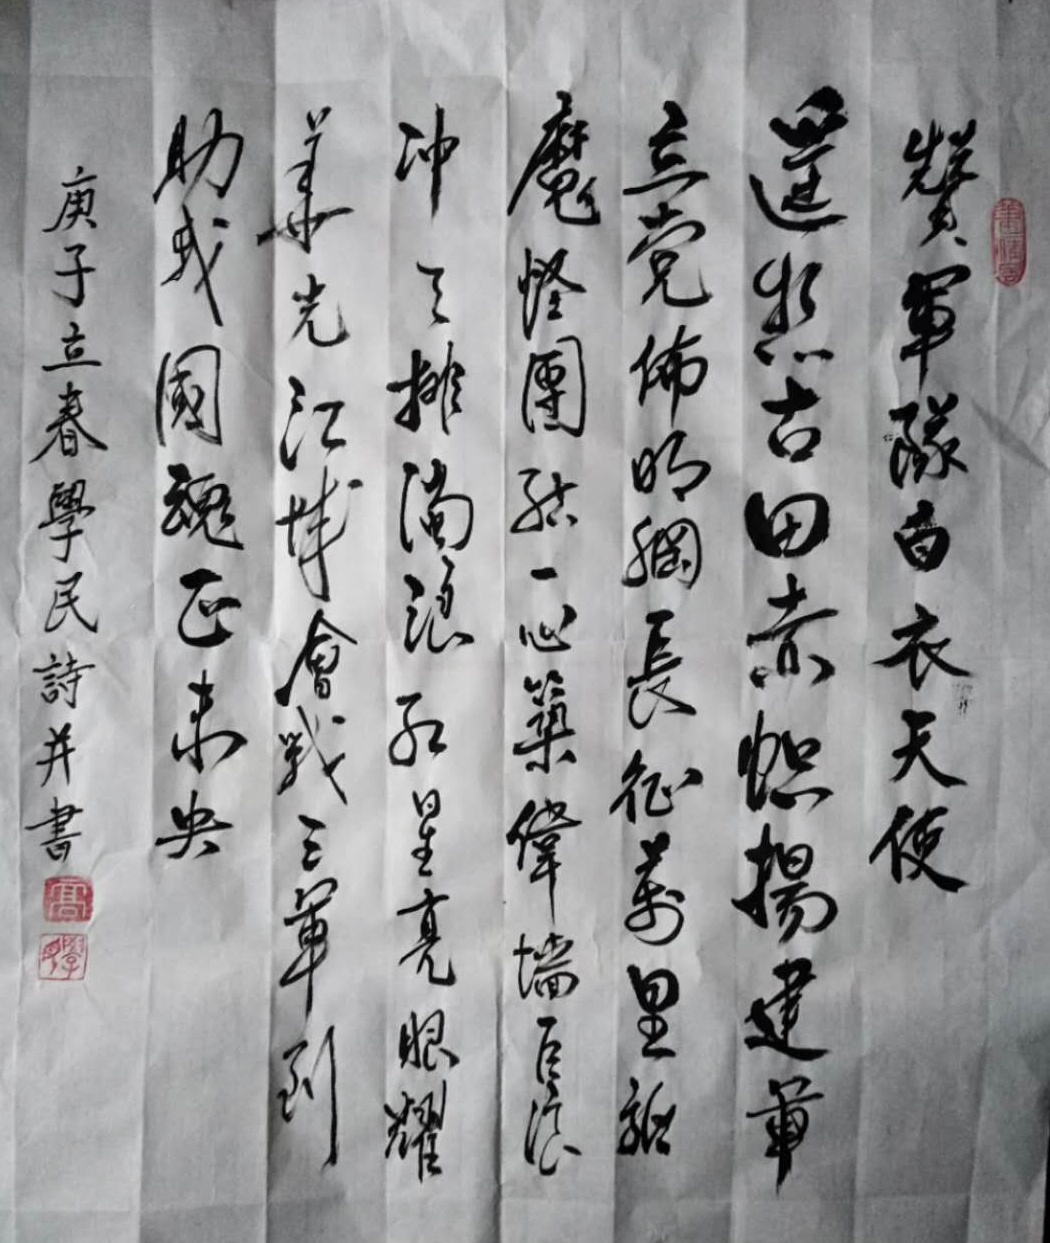 赞軍隊白衣天使
遥想古田赤帜揚建軍
立党佈明綱長征萬里
魔怪團结一心築偉墙巨浪
冲天排濁浪红星亮眼耀
華光江城會戰三軍到
助我國魂正未央
庚子立春學民詩并書